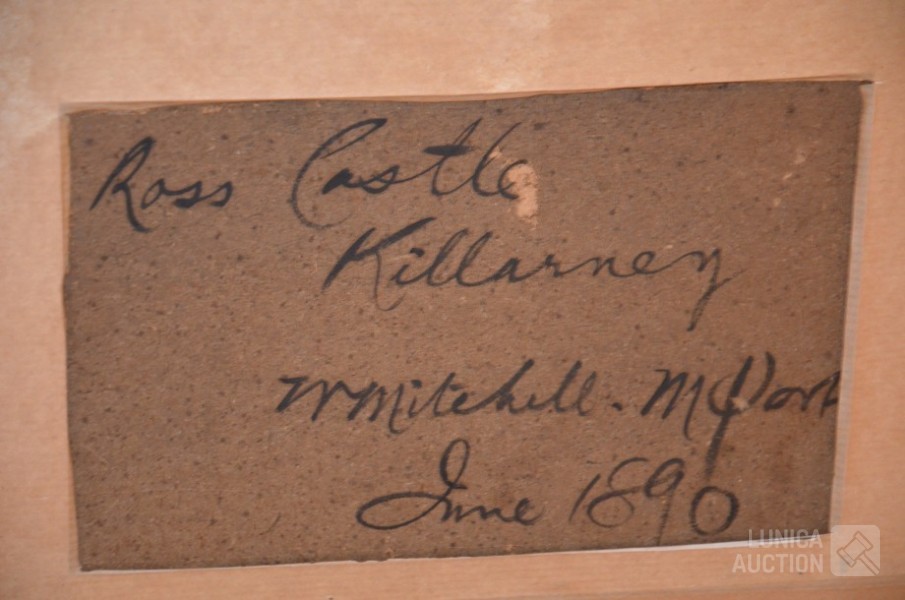 Ross Castle
Killarney
W Mitchell. M Port
June 1890
LUNICA
AUCTION